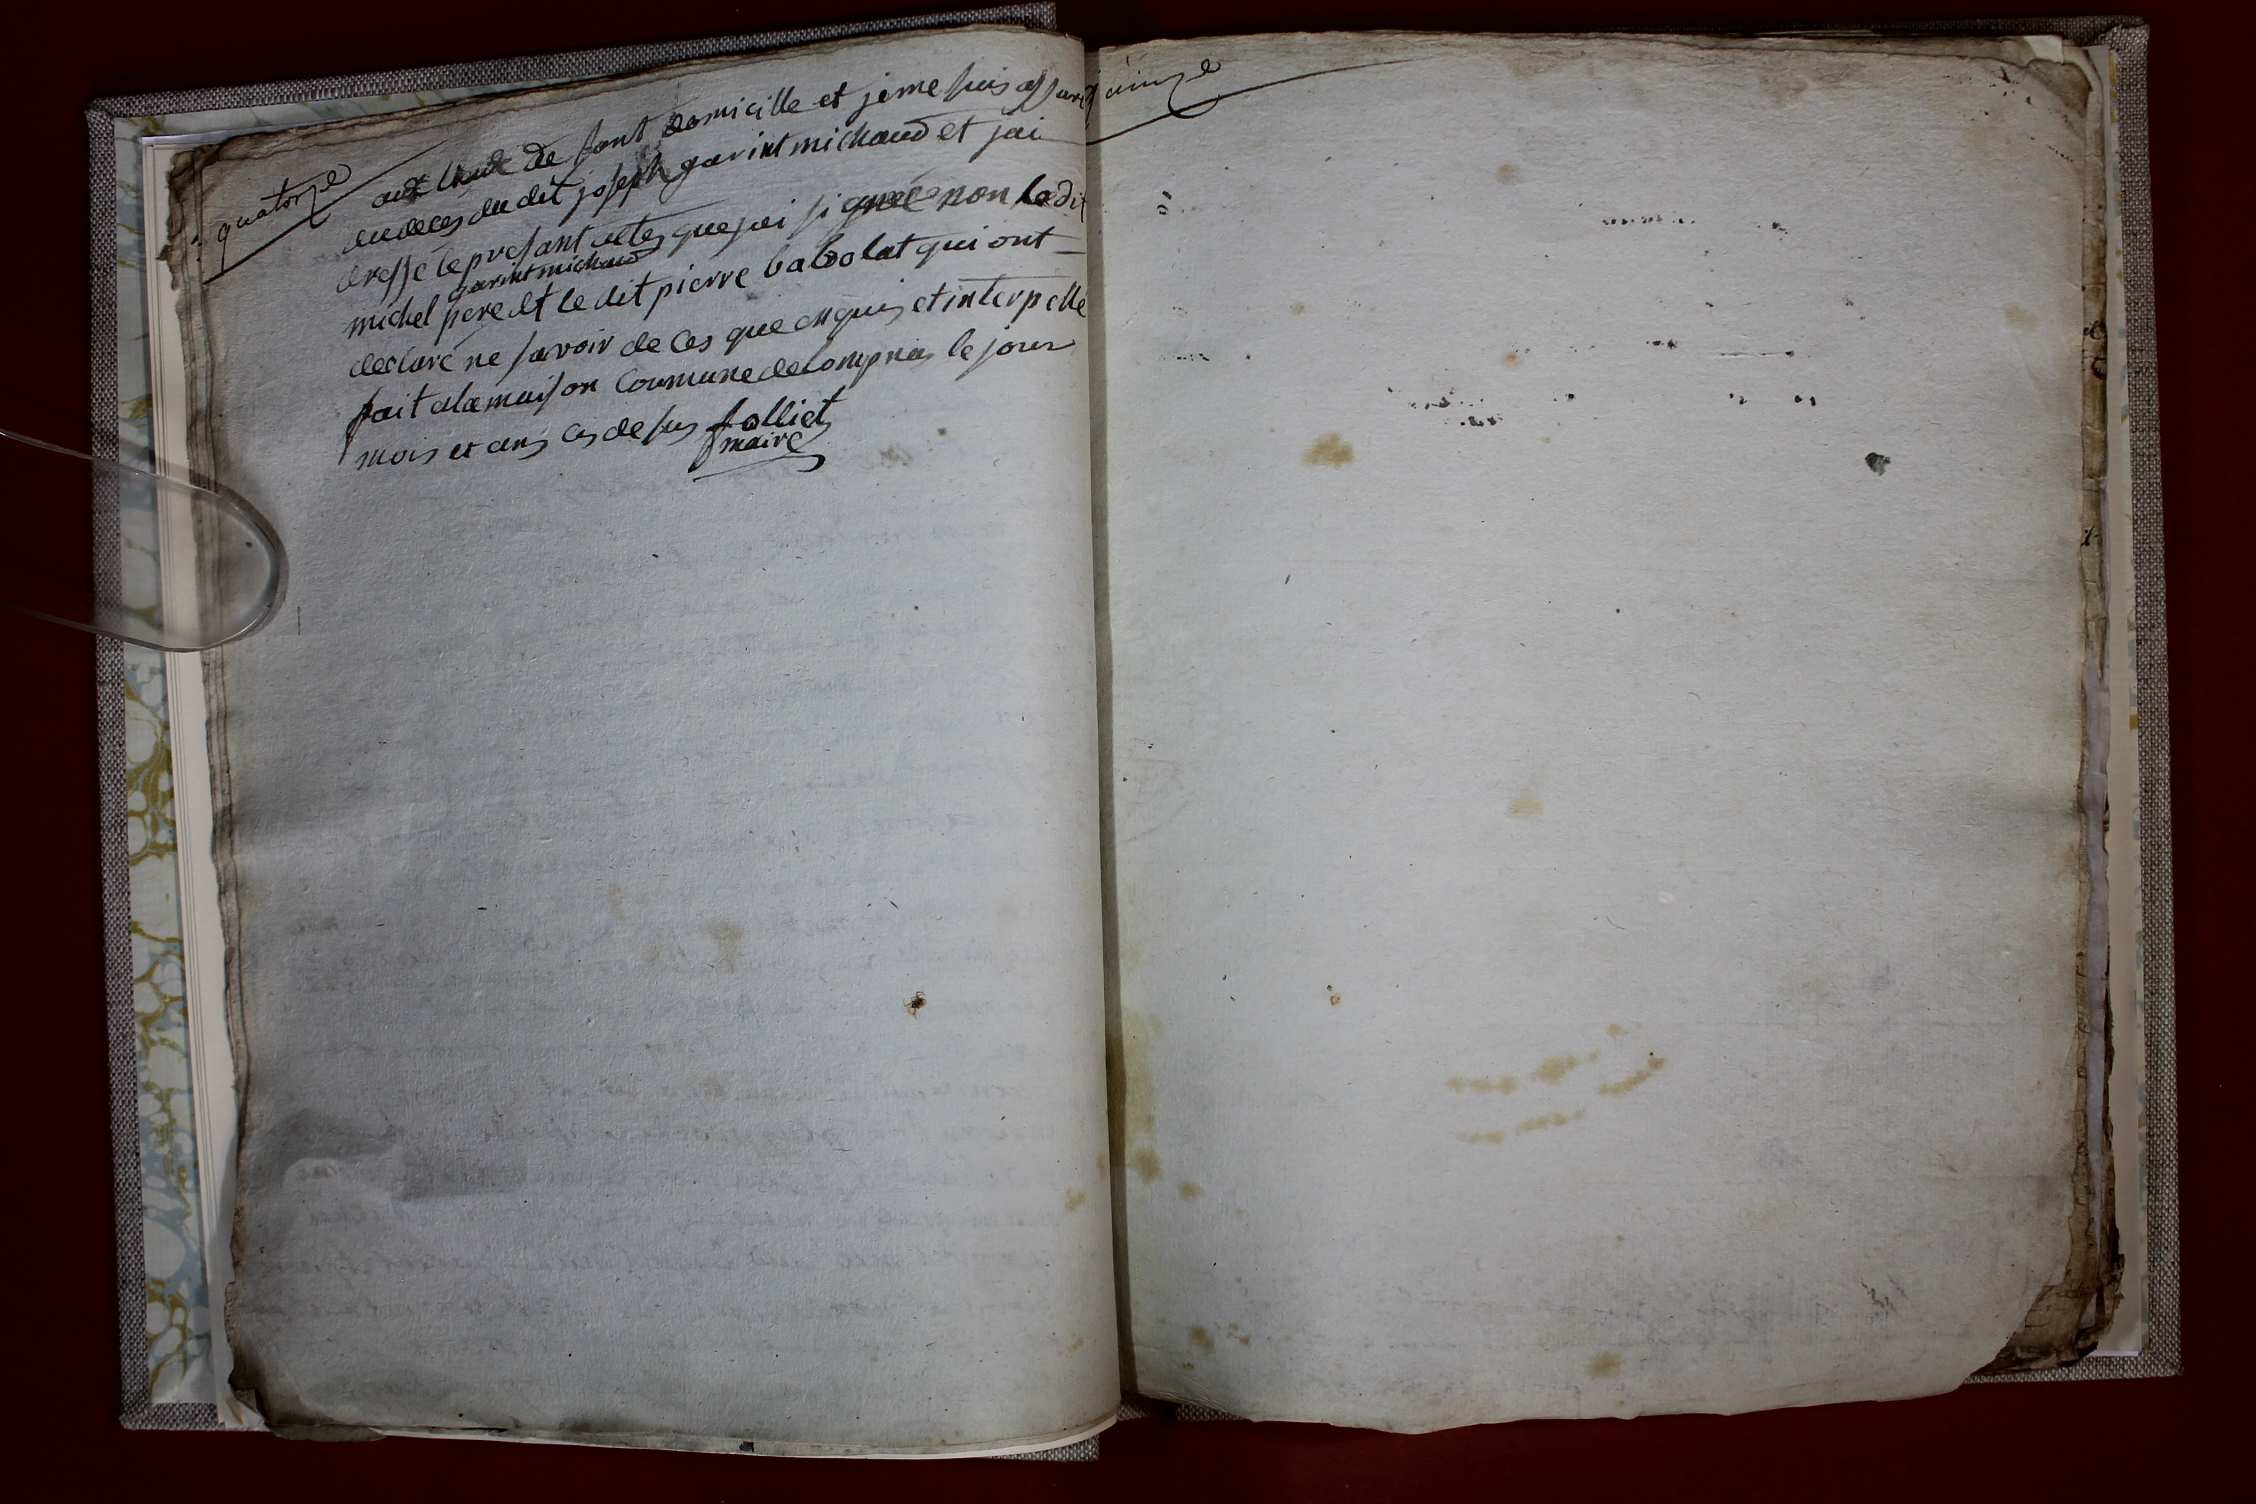 quatorze
aux lieux de sont domicille et je me suis assuré
du deces du dit joseph garint michaud et jai
dresse le presant actes que jai signé non le dit
garint michaud
michel pere et le dit pierre babolat qui ont
declaré ne savoir de ces que enquis et interpelle
fait a la maison Commune de Lompnas le jour
mois et ans cy de sus folliet
maire
quinze